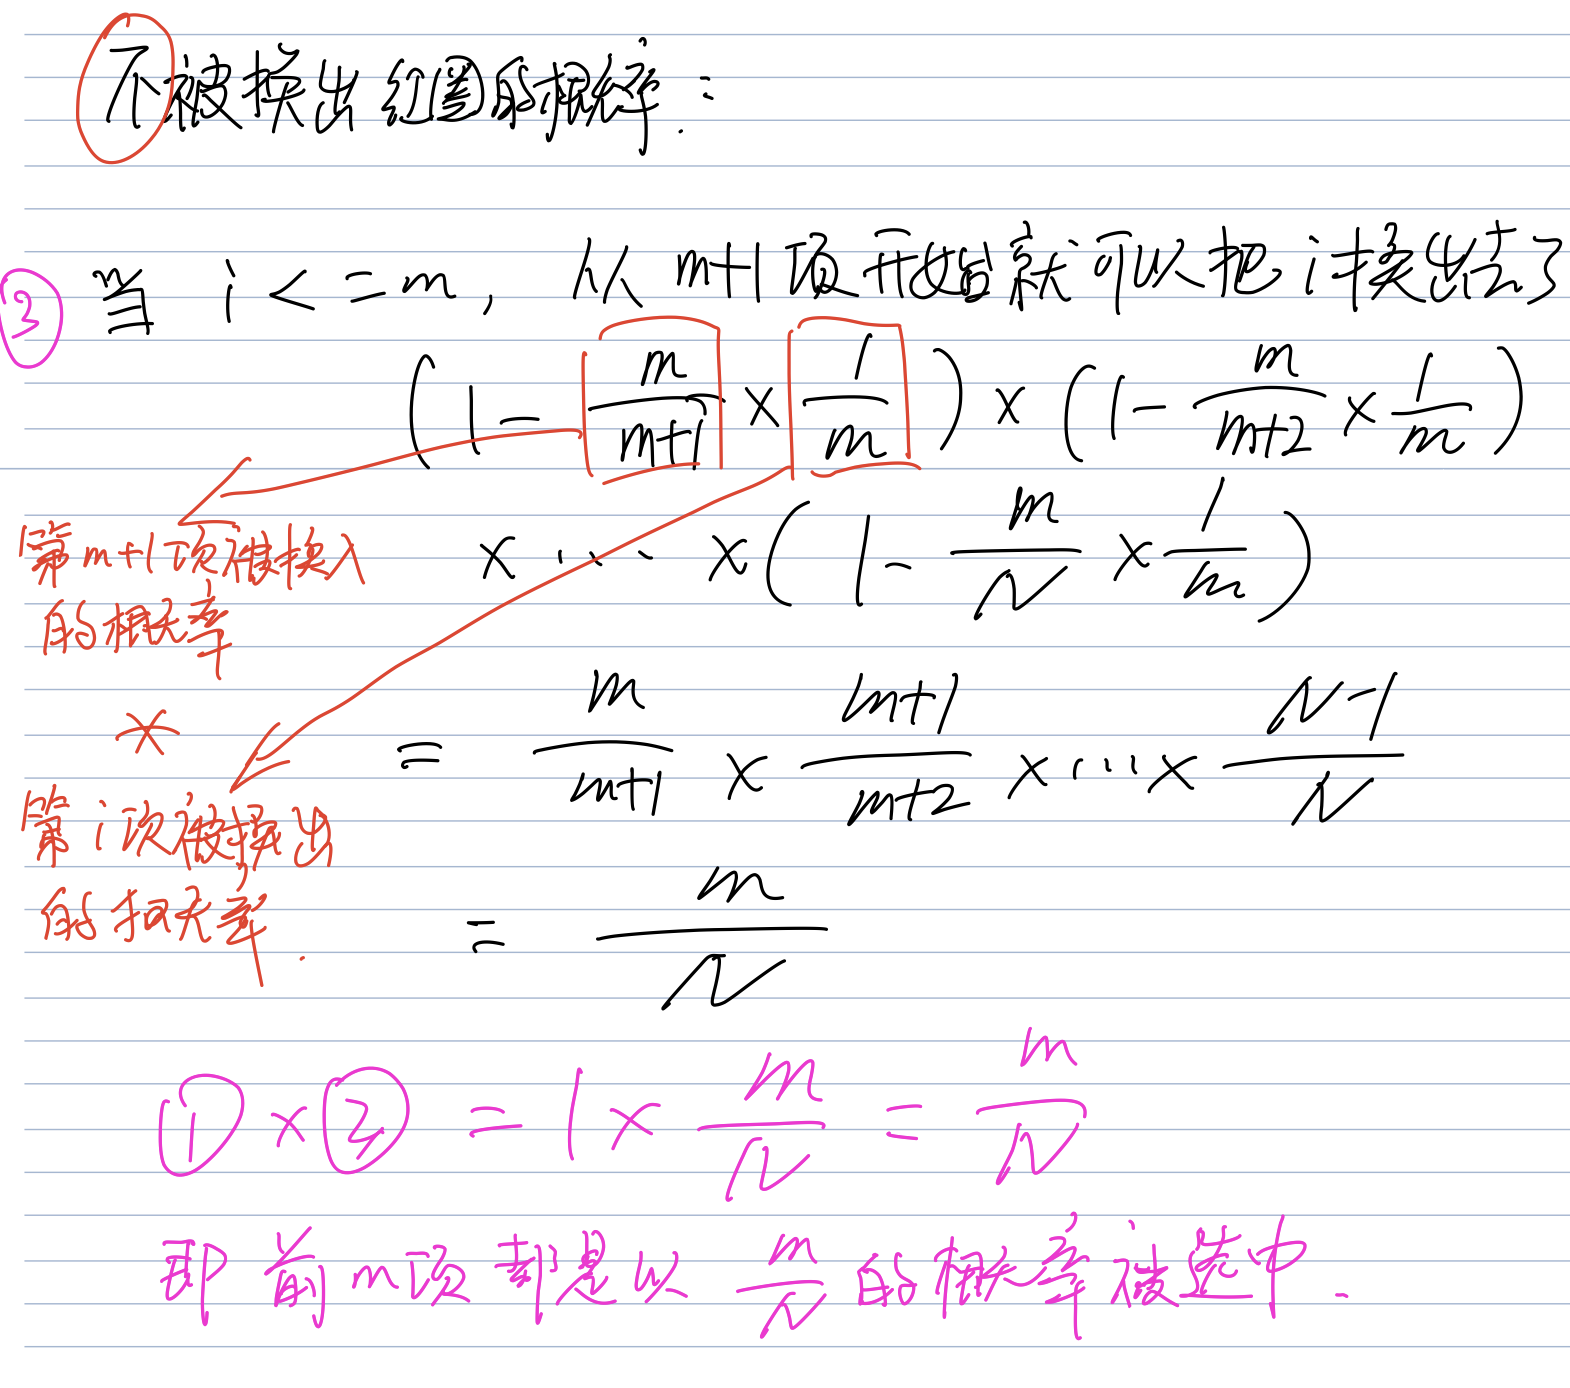 不被换出红圈的概率:
③ 当 i <= m, 从 m+1 项开始就可以把 i 换出去了
(1 - m/(m+1) × 1/m) × (1 - m/(m+2) × 1/m)
× ··· × (1 - m/N × 1/m)
第 m+1 项被换入
的概率
*
第 i 项被换出
的概率.
= m/(m+1) × (m+1)/(m+2) × ··· × (N-1)/N
= m/N
① × ③ = 1 × m/N = m/N
即前 m 项都是以 m/N 的概率被选中.